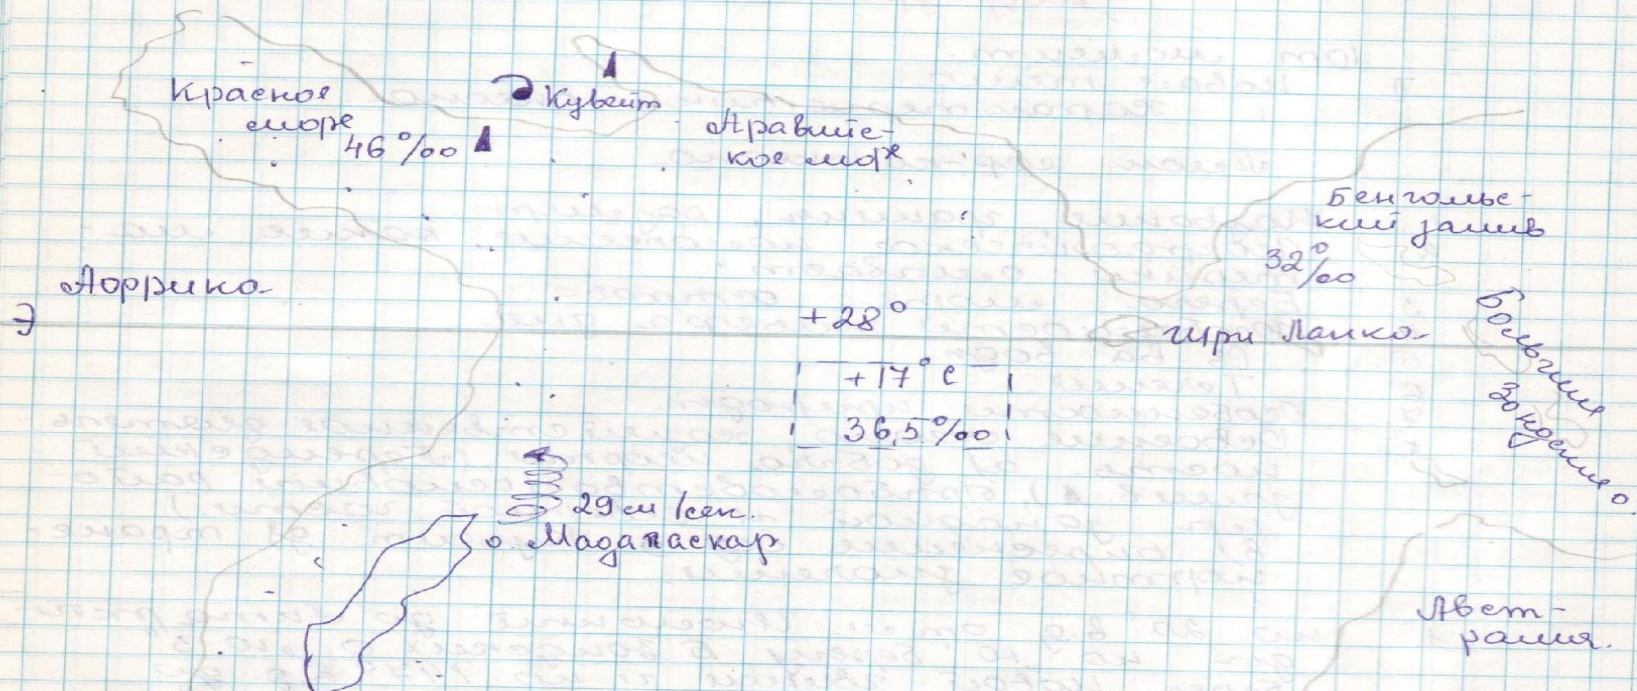 Красное
море
46‰
Кувейт
Аравийс-
кое море
Бенгольс-
кий залив
32‰
Аоррика
Э
+28°
Шри Ланка
Большие
Зондские о.
+17°С
36,5‰
29 м/сек.
о. Мадагаскар
Авст-
ралия.